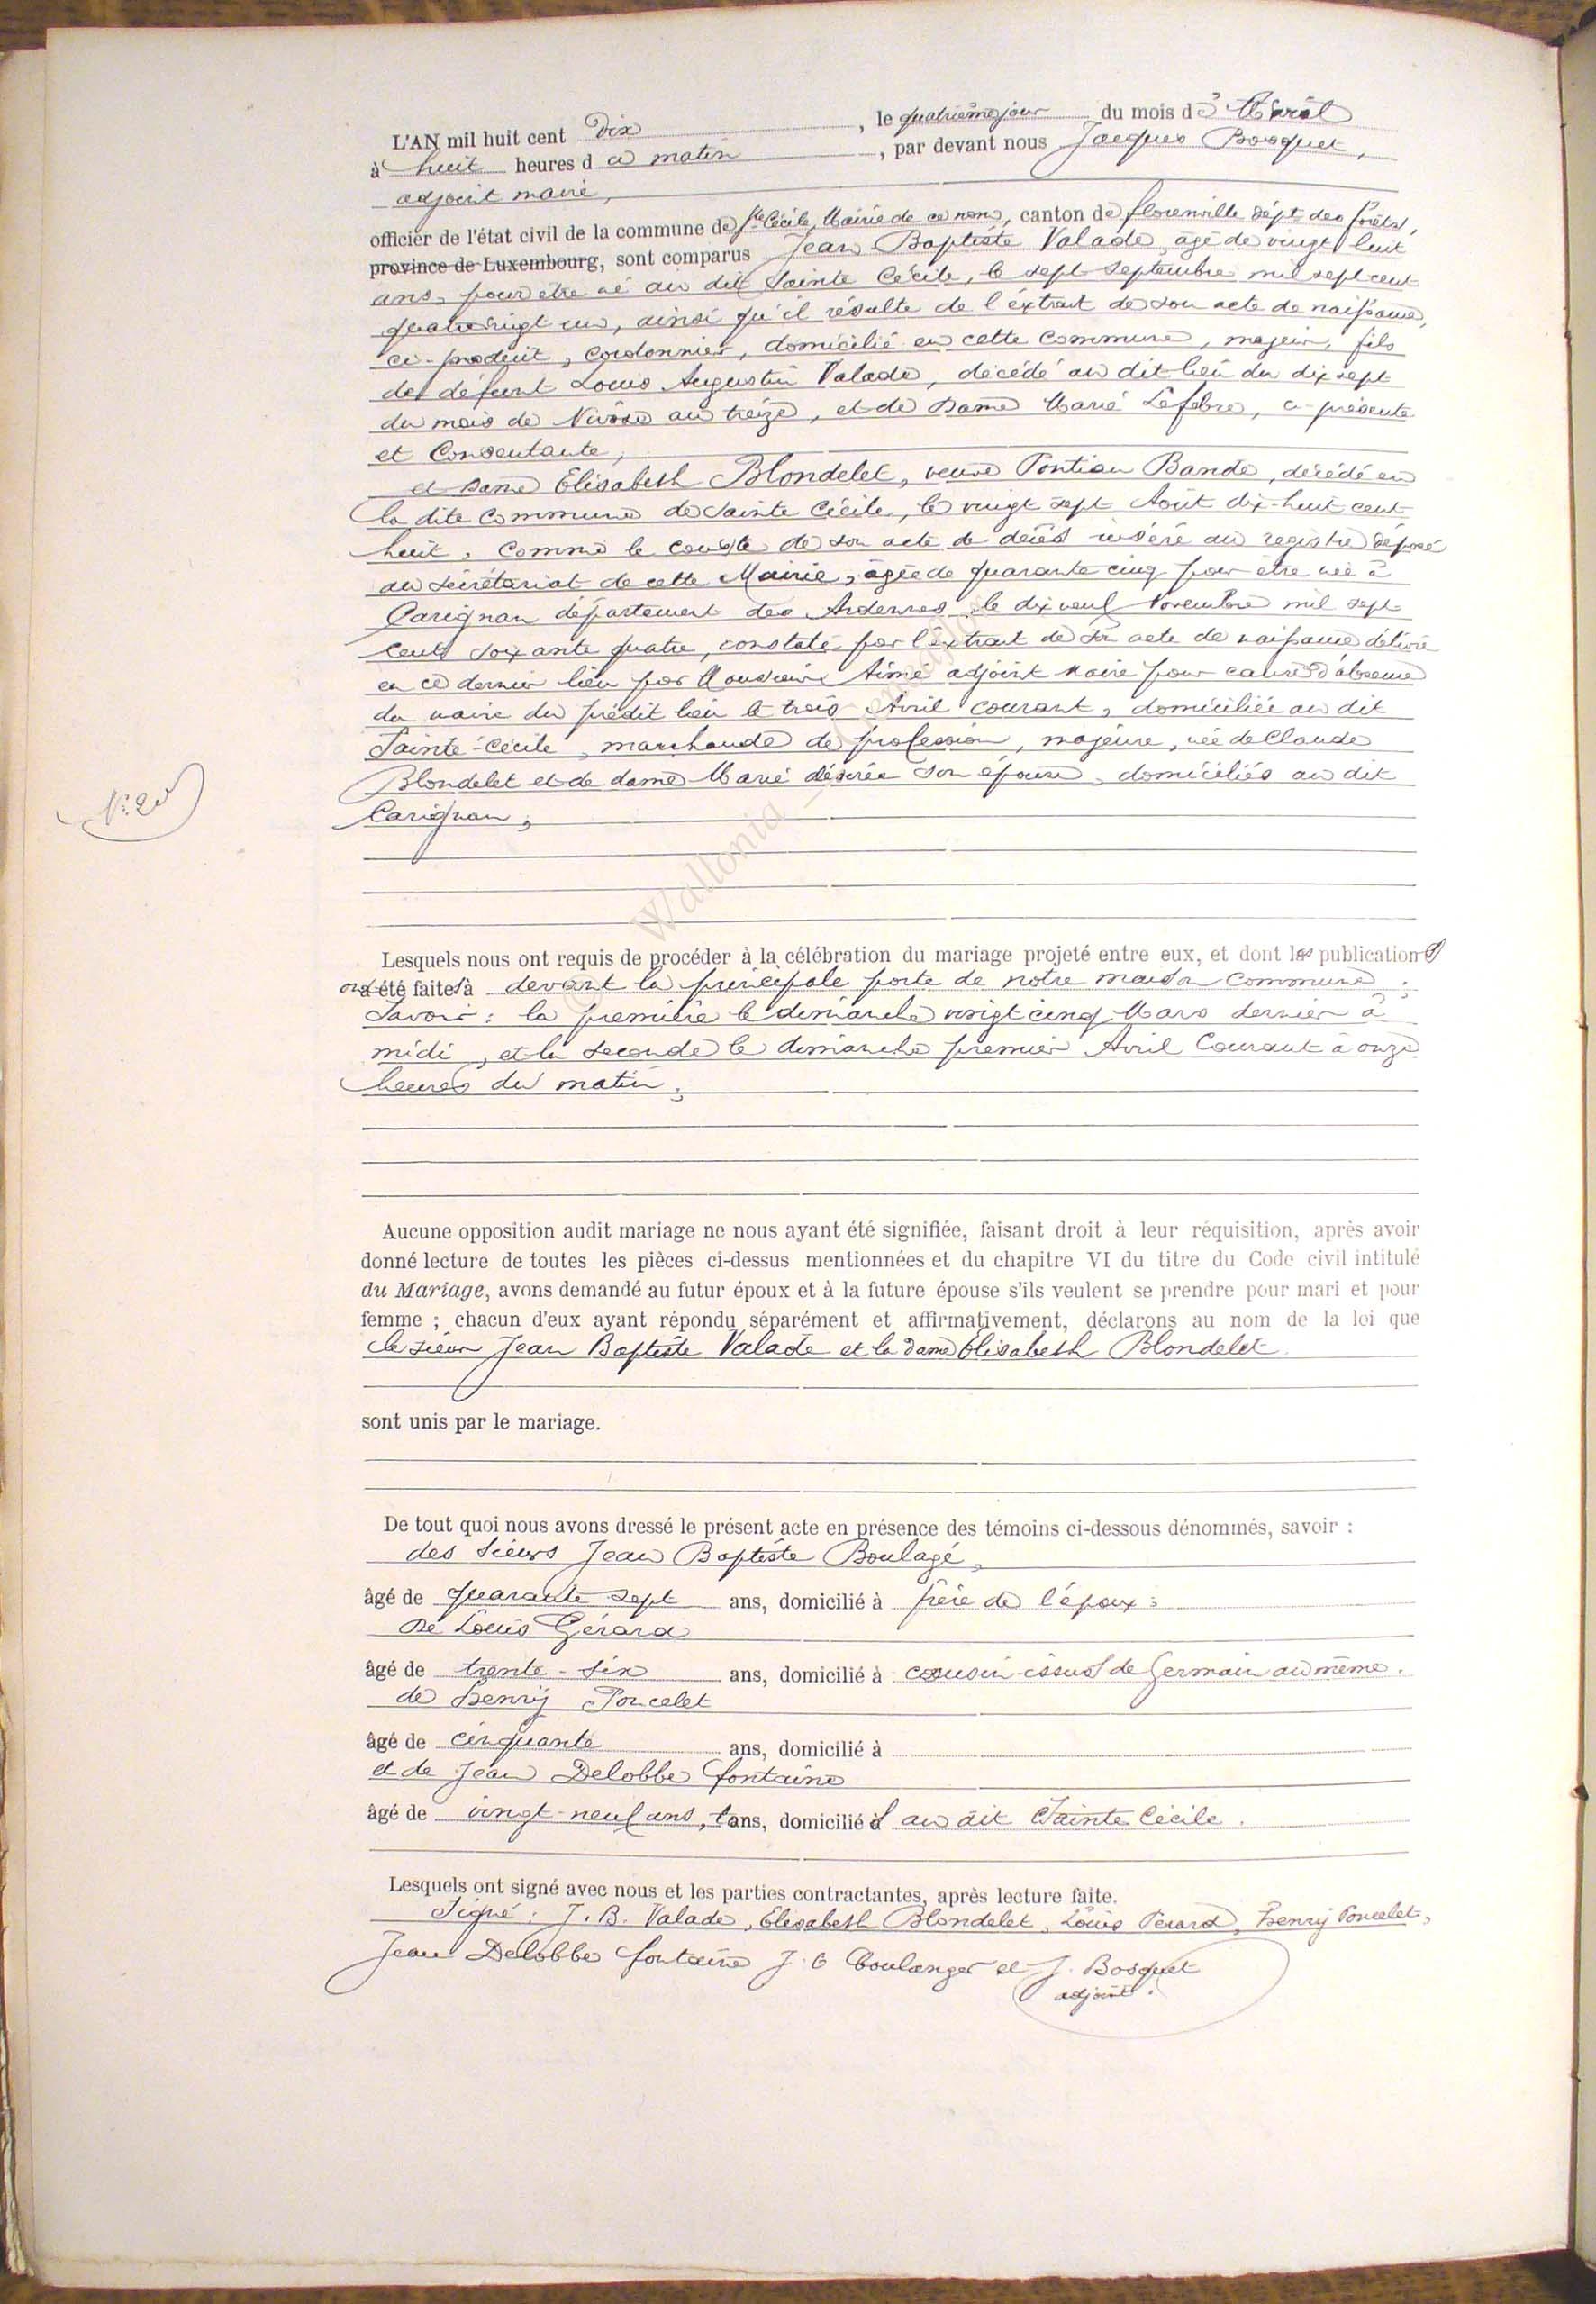 L'AN mil huit cent Dix, le quatrième jour du mois d'Avril
à huit heures du matin, par devant nous Jacques Bosquet,
adjoint maire,
officier de l'état civil de la commune de Ste Cécile, Mairie de ce nom, canton de florenville dépt des forêts,
province de Luxembourg, sont comparus Jean Baptiste Valade, âgé de vingt huit
ans, pour être né au dit Sainte Cécile, le sept Septembre mil sept cent
quatre vingt un, ainsi qu'il résulte de l'extrait de son acte de naissance,
ci-produit, cordonnier, domicilié en cette commune, majeur, fils
de défunt Louis Augustin Valade, décédé au dit lieu du dix sept
du mois de Nivôse an treize, et de Dame Marie Lefebre, ci-présente
et Consentante,
et Dame Elisabeth Blondelet, veuve Pontian Bande, décédé en
la dite commune de Sainte Cécile, le vingt sept Août dix-huit cent
huit, comme le conste de son acte de décès inséré au registre déposé
au secrétariat de cette Mairie, âgée de quarante cinq pour être née à
Carignan département des Ardennes le dix neuf Novembre mil sept
Cent soixante quatre, constaté par l'extrait de sn acte de naissance délivré
en ce dernier lieu par Monsieur Aimé adjoint maire pour cause d'absence
du maire du prédit lieu le trois Avril courant, domiciliée au dit
Sainte-Cécile, marchande de profession, majeure, née de Claude
Blondelet et de dame Marie désirée son épouse, domiciliés au dit
Carignan,
N° 2
© Wallonia
Lesquels nous ont requis de procéder à la célébration du mariage projeté entre eux, et dont les publications
ont été faites à devant la principale porte de notre maison commune;
Savoir: la première le dimanche vingt cinq Mars dernier à
midi, et la seconde le dimanche premier Avril Courant à onze
heures du matin,
Aucune opposition audit mariage ne nous ayant été signifiée, faisant droit à leur réquisition, après avoir
donné lecture de toutes les pièces ci-dessus mentionnées et du chapitre VI du titre du Code civil intitulé
du Mariage, avons demandé au futur époux et à la future épouse s'ils veulent se prendre pour mari et pour
femme ; chacun d'eux ayant répondu séparément et affirmativement, déclarons au nom de la loi que
le sieur Jean Baptiste Valade et la Dame Elisabeth Blondelet.
sont unis par le mariage.
De tout quoi nous avons dressé le présent acte en présence des témoins ci-dessous dénommés, savoir :
des Sieurs Jean Baptiste Boulagé,
âgé de quarante sept ans, domicilié à frère de l'époux;
De Louis Gérard
âgé de trente-six ans, domicilié à cousin issus de Germain au même.
de Henry Poncelet
âgé de cinquante ans, domicilié à
et de Jean Delobbe fontaine
âgé de vingt-neuf ans, ans, domicilié au dit Sainte Cécile.
Lesquels ont signé avec nous et les parties contractantes, après lecture faite.
Signé: J. B. Valade, Elisabeth Blondelet, Louis Gérard, Henry Poncelet,
Jean Delobbe fontaine J. B Boulanger et J. Bosquet
adjoint.